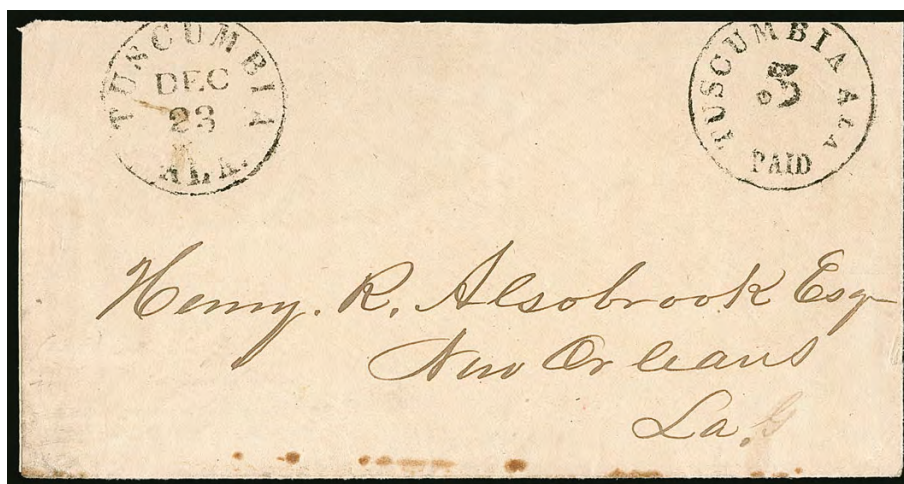 TUSCUMBIA
DEC
23
ALA.
TUSCUMBIA ALA
5
PAID
Henry. R. Alsobrook Esq
New Orleans
La.